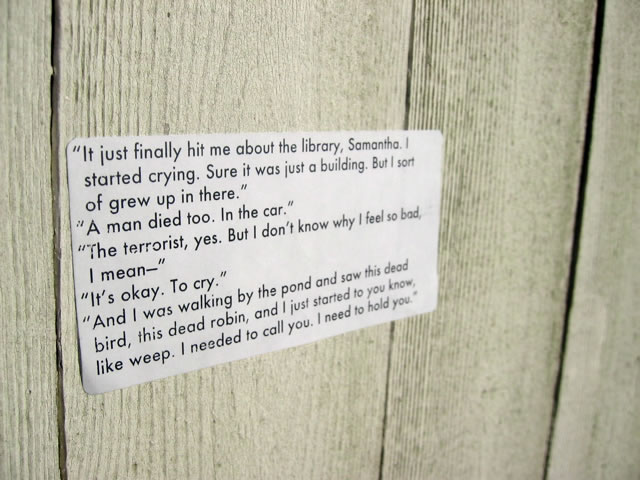 “It just finally hit me about the library, Samantha. I
started crying. Sure it was just a building. But I sort
of grew up in there.”
“A man died too. In the car.”
“The terrorist, yes. But I don’t know why I feel so bad,
I mean—”
“It’s okay. To cry.”
“And I was walking by the pond and saw this dead
bird, this dead robin, and I just started to you know,
like weep. I needed to call you. I need to hold you.”